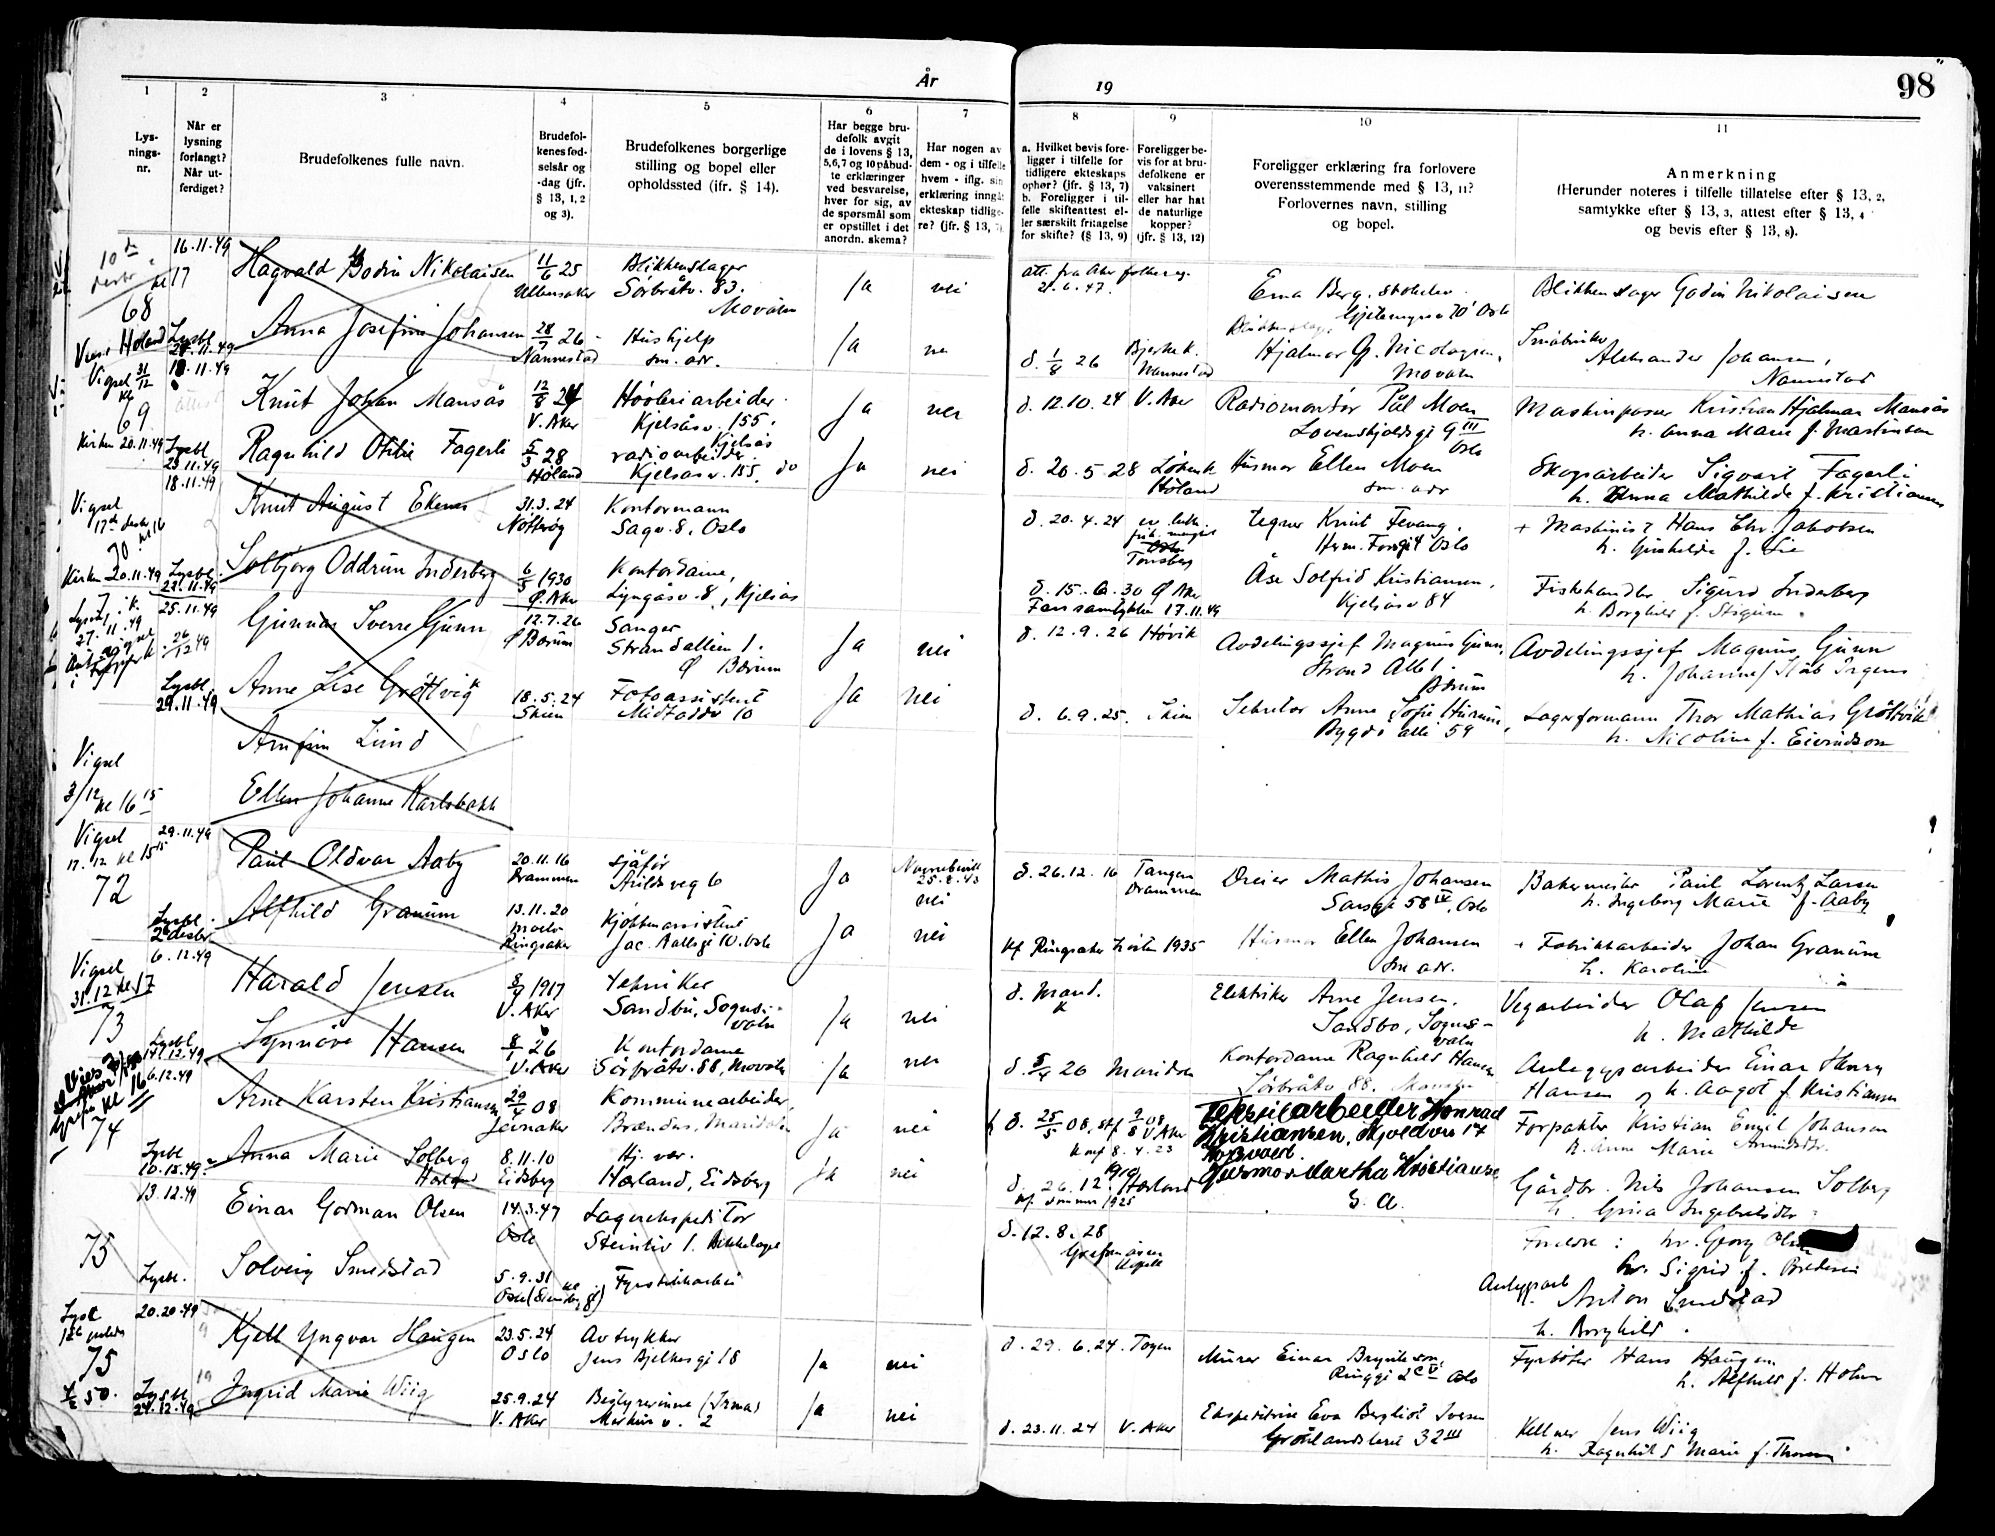 År 19
98
1 2 3 4 5 6 7 8 9 10 11
Lys-
nings-
nr.
Når er
lysning
forlangt?
Når ut-
ferdiget?
Brudefolkenes fulle navn.
Brudefol-
kenes fød-
selsår og
-dag (jfr.
§ 13, 1, 2
og 3).
Brudefolkenes borgerlige
stilling og bopel eller
opholdssted (ifr. § 14).
Har begge bru-
defolk avgit
de i lovens § 13,
5,6,7 og 10 påbud-
te erklæringer
ved besvarelse,
hver for sig, av
de spørsmål som
er opstillet i det
anordn. skema?
Har nogen av
dem - og i tilfelle
hvem - iflg. sin
erklæring inngåt
ekteskap tidlige-
re? (jfr. § 13, 7).
a. Hvilket bevis fore-
ligger i tilfelle for
tidligere ekteskaps
ophør? (jfr. § 13, 7)
b. Foreligger i til-
felle skifteattest el-
ler særskilt fritagelse
for skifte? (§ 13, 9)
Foreligger be-
vis for at bru-
defolkene er
vaksinert
eller har hat
de naturlige
kopper?
(jfr. § 13, 12)
Foreligger erklæring fra forlovere
overensstemmende med § 13, 11?
Forlovernes navn, stilling
og bopel.
Anmerkning
(Herunder noteres i tilfelle tillatelse efter § 13, 2,
samtykke efter § 13, 3, attest efter § 13, 4
og bevis efter § 13, 8).
16.11.49
68
Hagvald Bodin Nikolaisen
11/6 25
Ullensaker
Blikkenslager
Sörbråtv. 83.
Movatn
Ja nei
att. fra Aker folkereg.
21.6.47.
Erna Berg.
Blikkenslager Godin Nikolaisen
Lysbl
Anna Josefine Johansen
28/7 26
Nannestad
Hushjelp
sm. adr.
Ja nei
d. 1/8 26
Bjerke k.
Nannestad
Hjalmar G. Nicolaysen,
Movatn
Småbruker
Aleksander Johansen,
Nannestad
Vigsel 31/12
69
18.11.49
Knut Johan Mansås
12/8 24
V. Aker
Høvleriarbeider
Kjelsåsv. 155.
Kjelsås
Ja nei
d. 12.10.24 V. Aker
Radiomontör Pål Moen
Lovenskjoldsgt 9 III
Oslo
Maskinpasser Kristian Hjalmar Mansås
h. Anna Marie f. Martinsen
Kirken 20.11.49
Lysbl
Ragnhild Otilie Fagerli
5/3 28
Høland
radioarbeider
Kjelsåsv. 155. do
Ja nei
d. 20.5.28 Løken k
Höland
Husmor Ellen Moen
sm. adr
Skogsarbeider Sigvart Fagerli
h. Anna Mathilde f. Kristiansen
Vigsel
70
18.11.49
Knut August Ekenes
31.3.24
Nøtterøy
Kontormann
Sagv. 8, Oslo
d. 20.4.24
Tønsberg
Tegner Knut Fevang.
+ Maskinist Hans Chr. Jakobsen
h. Gunhilda f. Lie
Kirken 20.11.49
Lysbl.
Solbjørg Oddrun Inderberg
6/5 1930
Ø. Aker
Kontordame,
Lyngåsv. 8, Kjelsås
d. 15.6.30 Ø Aker
Fars samtykke 17.11.49
Åse Solfrid Kristiansen,
Kjelsåsv 84
Fiskehandler Sigurd Inderberg
h. Borghild f. Stigum
27.11.49
71
25.11.49
Gunnar Sverre Gunn
12.7.26
Ø Bærum
Sanger
Strandalleen 1.
Ø Bærum
Ja nei
d. 12.9.26 Høvik
Avdelingssjef Magnus Gunn,
Strand Alle 1.
Bærum
Avdelingssjef Magnus Gunn
h. Johanne Stub Irgens
Lysbl
29.11.49
Anne Lise Gröttvik
18.5.24
Skien
Fotoassistent
Midtoddv 10
Ja nei
d. 6.9.25. Skien
Sekretær Anne Sofie Hurum,
Bygdö allé 59
Lagerformann Thor Mathias Gröttvik
h. Nicoline f. Eivindson
Vigsel
3/12 kl 16 15
Arnfinn Lund
Ellen Johanne Karlsbakk
Vigsel
17.12 kl 15 15
72
29.11.49
Paul Oldvar Aaby
20.11.16
Drammen
sjåfør
Arildsveg 6
Ja nei
d. 26.12.16 Tangen
Drammen
Dreier Mathis Johansen
Sarsgt 58 IV, Oslo
Bakermester Paul Lorentz Larsen
h. Ingeborg Marie f. Aaby
Lysbl.
Alfhild Granum
13.11.20
Moelv
Ringsaker
Kjøkkenassistent
Jac. Aallsgt 10. Oslo
Ja nei
kf Ringsaker høsten 1935
Husmor Ellen Johansen
sm adr.
+ Fabrikkarbeider Johan Granum
h. Karoline
Vigsel
31.12 kl. 17
73
6.12.49
Harald Jensen
8/9 1917
V. Aker
tekniker
Sandbu, Sogns-
vatn
Ja nei
d. Marid.
k
Elektriker Arne Jensen.
Sandbo, Sogns-
vatn
Vegarbeider Olaf Jensen
h. Mathilde
Lysbl
14.12.49
Synnöve Hansen
8/1 26
V. Aker
Kontordame
Sörbråtv. 88, Movatn
Ja nei
d. 5/4 26 Maridalen
Kontordame Ragnhild Hansen
Sörbråtv 88. Movatn
Anleggsarbeider Einar Henry
Hansen og h. Aagot f. Kristiansen
kl 16
74
6.12.49
Arne Karsten Kristiansen
29/4 08
Jevnaker
Kommunearbeider,
Brændås, Maridalen
Ja nei
d. 25/5 08,
V. Aker
Konf 8.4.23
Tekstilarbeider Konrad
Kristiansen, Kjoldvn 14
Husmor Martha Kristiansen
s. a.
Forpakter Kristian Engel Johansen
h. Anne Marie
Lysbl
Anna Marie Solberg
8.11.10
Eidsberg
Hj. vær.
Hærland, Eidsberg
Ja nei
d. 26.12 1910 Hærland
kf. sommer 1925
Gårdbr. Nils Johansen Solberg
h. Grina Ingebretsdtr
75
13.12.49
Einar Godman Olsen
Oslo
Lagerekspeditør
Steinliv 1. Bekkelaget
d. 12.8.28
Foreldre: hr. Georg Olsen
h. Sigrid f.
Lysbl.
Solveig Smedstad
5.9.31
Anleggsarb
Anton Smedstad
h. Borghild.
Lyst
75
20.20.49
Kjell Yngvar Haugen
23.5.24
Oslo
Avtrykker
Jens Bjelkesgt 18
Ja nei
d. 29.6.24. Tøyen
Murer Einar Brynhson,
Fyrbøter Hans Haugen
h. Alfhild f. Holm
Lysbl
24.12.49
Ingrid Marie Wiig
25.9.24
V. Aker
Bestyrerinne (Irma)
Markus v. 2
Ja nei
d. 23.11.24 V. Aker
Ekspeditrise Eva Bergliot Iversen
Grönlandsleret 32 III
Kellner Jens Wiig
h. Ragnhild Marie f. Thorsen